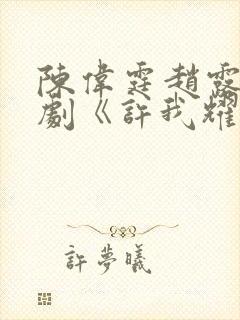 陳偉霆趙露
劇《許我耀
許夢曦